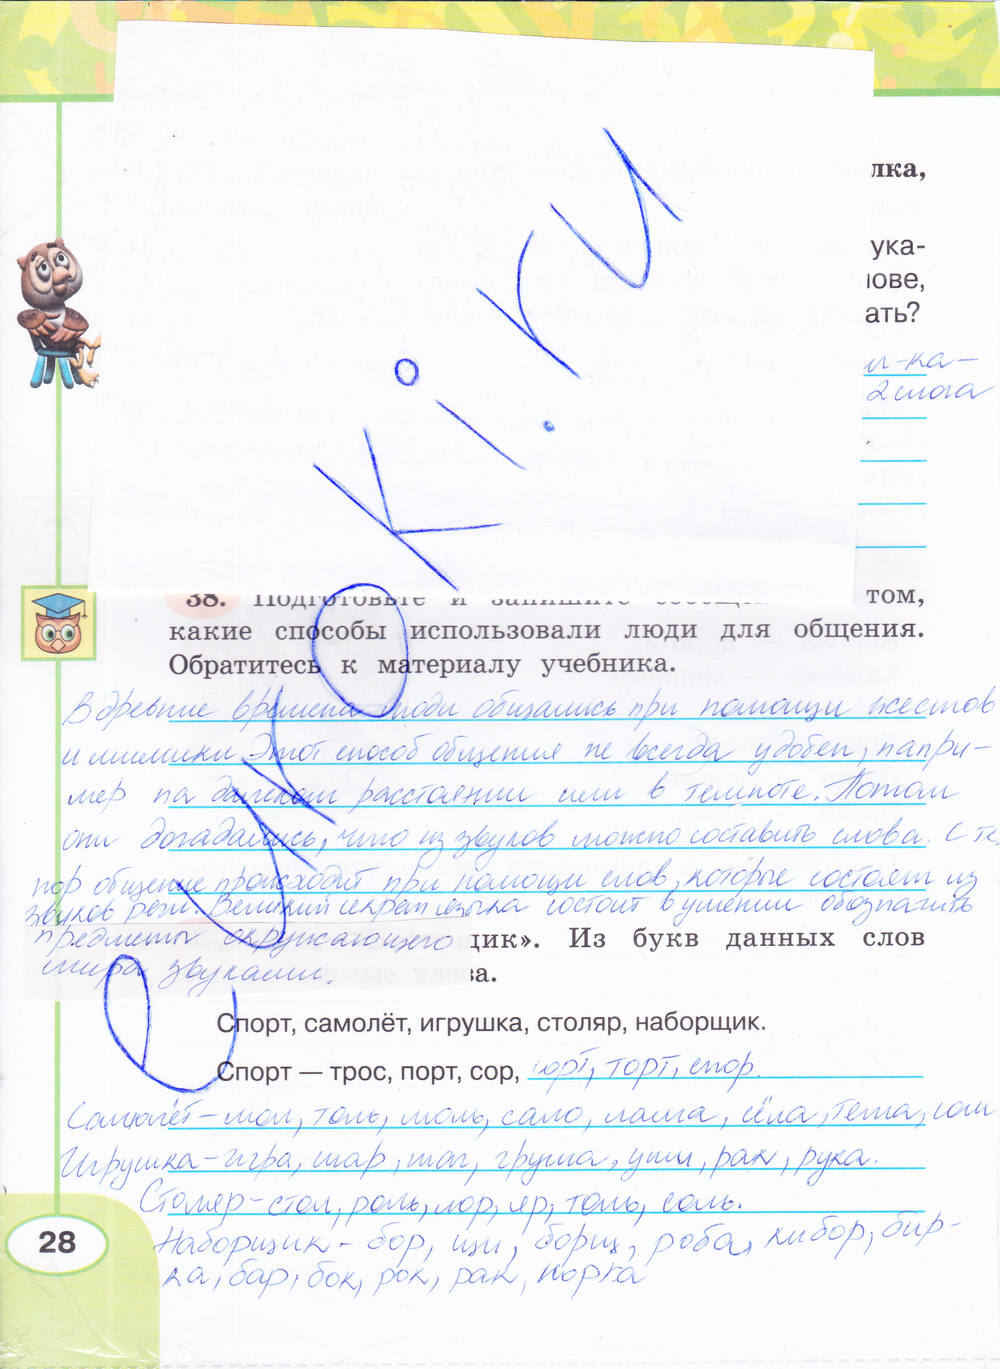 лка,
ука-
ове,
ать?
л-ка-
2 слога
38. Подготовьте и запишите том,
какие способы использовали люди для общения.
Обратитесь к материалу учебника.
В древние времена люди общались при помощи жестов
и мимики. Этот способ общения не всегда удобен, напри-
мер на далеком расстоянии или в темноте. Потом
они догадались, что из звуков можно составить слова. С тех
пор общение происходит при помощи слов, которые состоят из
звуков речи. Великий секрет языка состоит в умении обозначить
предметы окружающего щик». Из букв данных слов
мира звуками. ва.
Спорт, самолёт, игрушка, столяр, наборщик.
Спорт — трос, порт, сор, торт, спор.
Самолёт – мол, толь, моль, сало, лама, тема,
Игрушка – игра, шар, шаг, груша, уши, рак, рука.
Столяр – стол, роль, лор, яр, толь, соль.
Наборщик – бор, щи, борщ, роба, набор, бир-
ка, бар, бок, рок, рак, норка
28
euroki.ru